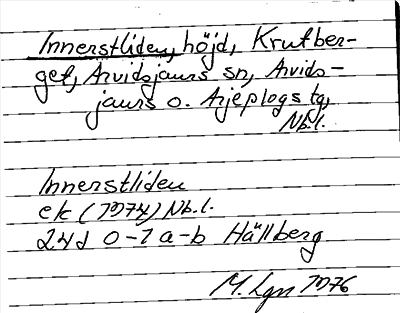 Innerstliden, höjd, Krutber-
get, Arvidsjaurs sn, Arvids-
jaurs o. Arjeplogs tg,
Nb.l.
Innerstliden
ek (1974) Nb.l.
24J 0-1 a-b Hällberg
M. Lgn 1976